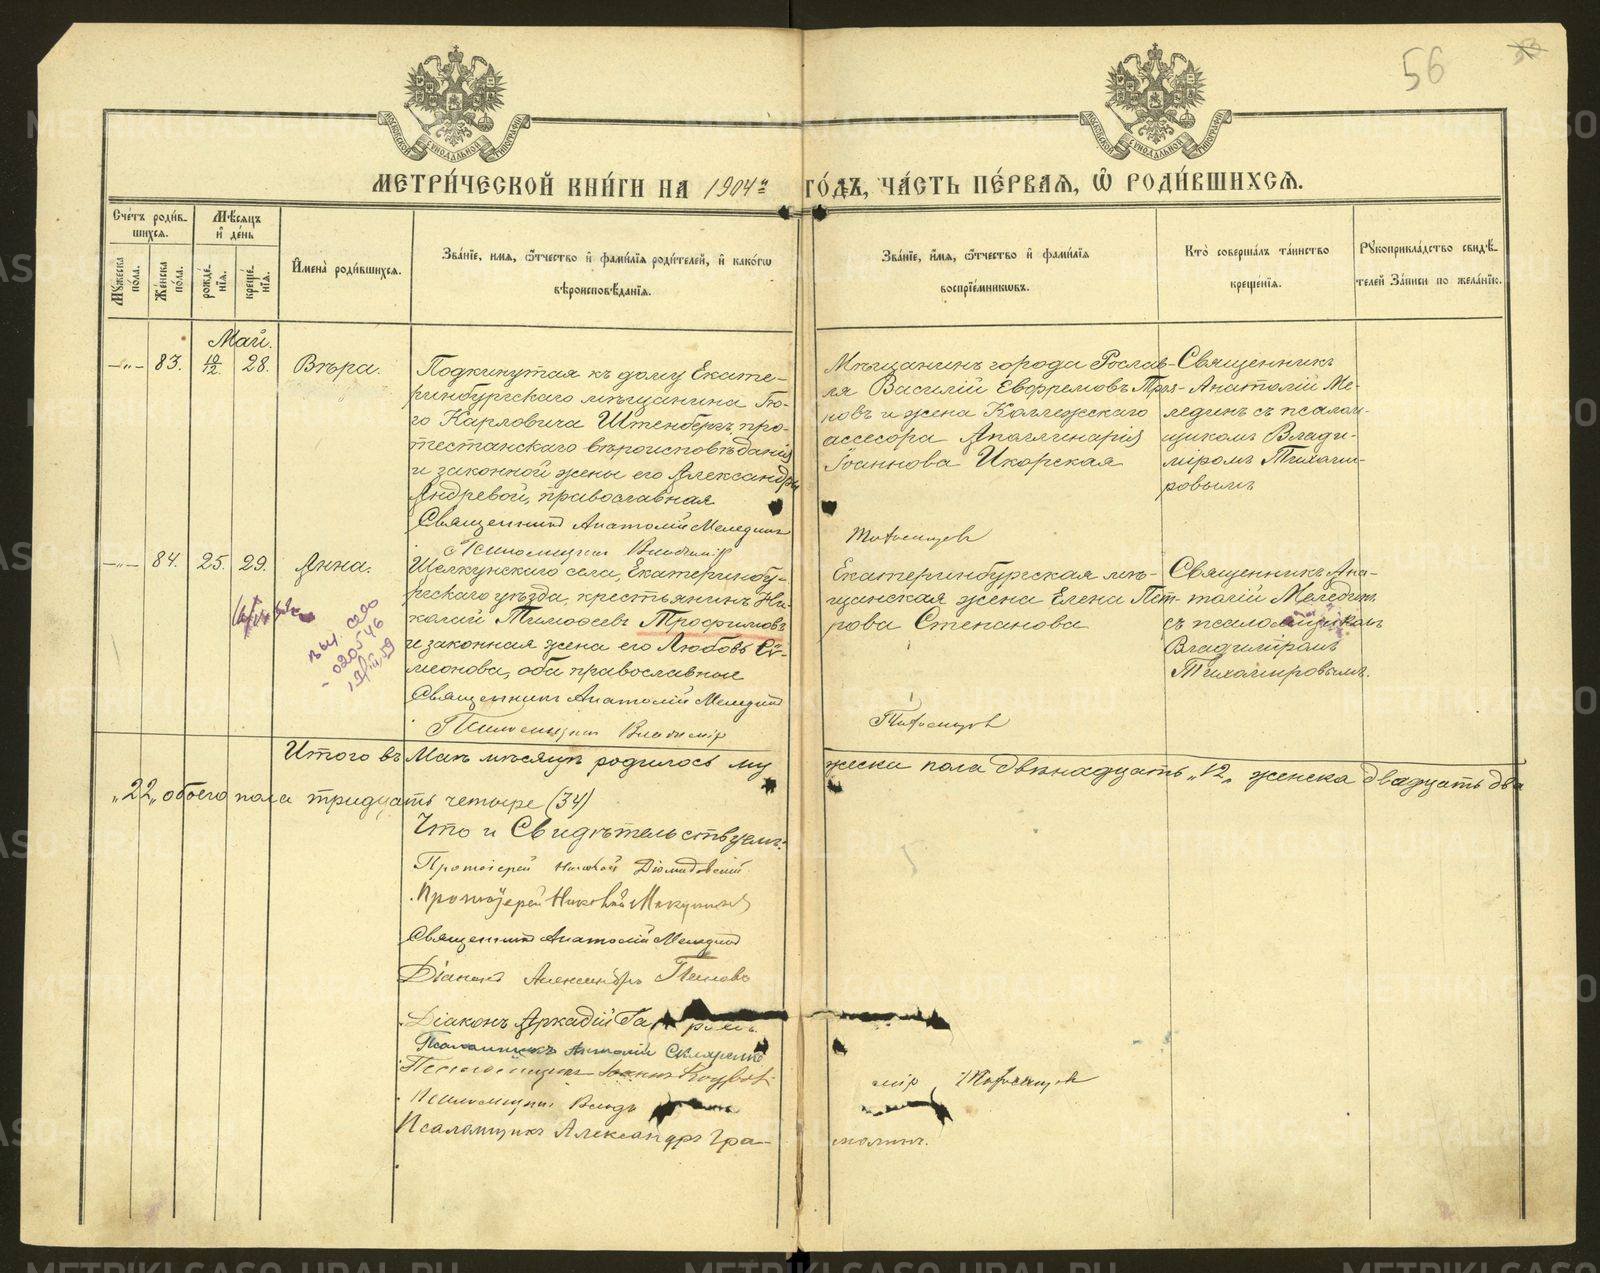 56
МЕТРИ́ЧЕСКОЙ КНИ́ГИ НА 1904й ГО́ДЪ, ЧА́СТЬ ПЕ́РВАЯ, Ѡ РОДИ́ВШИХСЯ.
Сче́тъ роди́в-
шихся.
Мѣ́сяцъ
и де́нь
Му́жеска по́ла.
Же́нска по́ла.
рожде́-
нїя.
креще́-
нїя.
Имена̀ роди́вшихся.
Зва́нїе, имя, ѻ́тчество и фами́лїя роди́телей, и како́гѡ
вѣроисповѣ́данїя.
Зва́нїе, имя, ѻ́тчество и фами́лїя
воспрїе́мникѡвъ.
Кто̀ соверша́лъ та́инство
креще́нїя.
Рукоприкла́дство свидѣ́-
телей за́писи по жела́нїю.
Май.
—"— 83. 10/12. 28. Вѣра.
Подкинутая къ дому Екате-
ринбургскаго мѣщанина Гю-
го Карловича Штенбергъ, про-
тестанскаго вѣроисповѣданія
и законной жены его Александры
Андревой, православная
Священникъ Анатолій Меледин
Псаломщикъ Владимір
Мѣщанинъ города Рослав-
ля Василій Евфремовъ
новъ и жена Коллежскаго
ассесора Аполлинарія
Іоаннова Икорская
Тихомиров
Священникъ
Анатолій Ме-
лединъ съ псалом-
щикомъ Влади-
міромъ Тихоми-
ровымъ
—"— 84. 25. 29. Анна.
Шелкунскаго села, Екатеринбу-
ргскаго уѣзда, крестьянинъ Ни-
колай Тимофеевъ Трофимовъ
и законная жена его Любовь Си-
меонова, оба православные
Священникъ Анатолій Меледин
Псаломщикъ Владимір
Екатеринбургская мѣ-
щанская жена Елена Пет-
рова Степанова
Тихомиров
Священникъ Ана-
толій Мелединъ
съ псаломщикомъ
Владиміромъ
Тихомировымъ.
Итого въ Маѣ мѣсяцѣ родилось му жеска пола двѣнадцать „12„ женска двадцать два
„22„ обоего пола тридцать четыре (34)
Что и Свидѣтельствуемъ:
Протоіерей Николай Діомидовскій
Протоіерей Николай
Священникъ Анатолій Меледин
Діаконъ Александръ Поповъ
Діаконъ Аркадій
Псаломщикъ Анатолій
Псаломщикъ Іоаннъ
Псаломщикъ Влади мір Тихомиров
Псаломщикъ Александръ Гра- молин.
METRIKI.GASO-URAL.RU